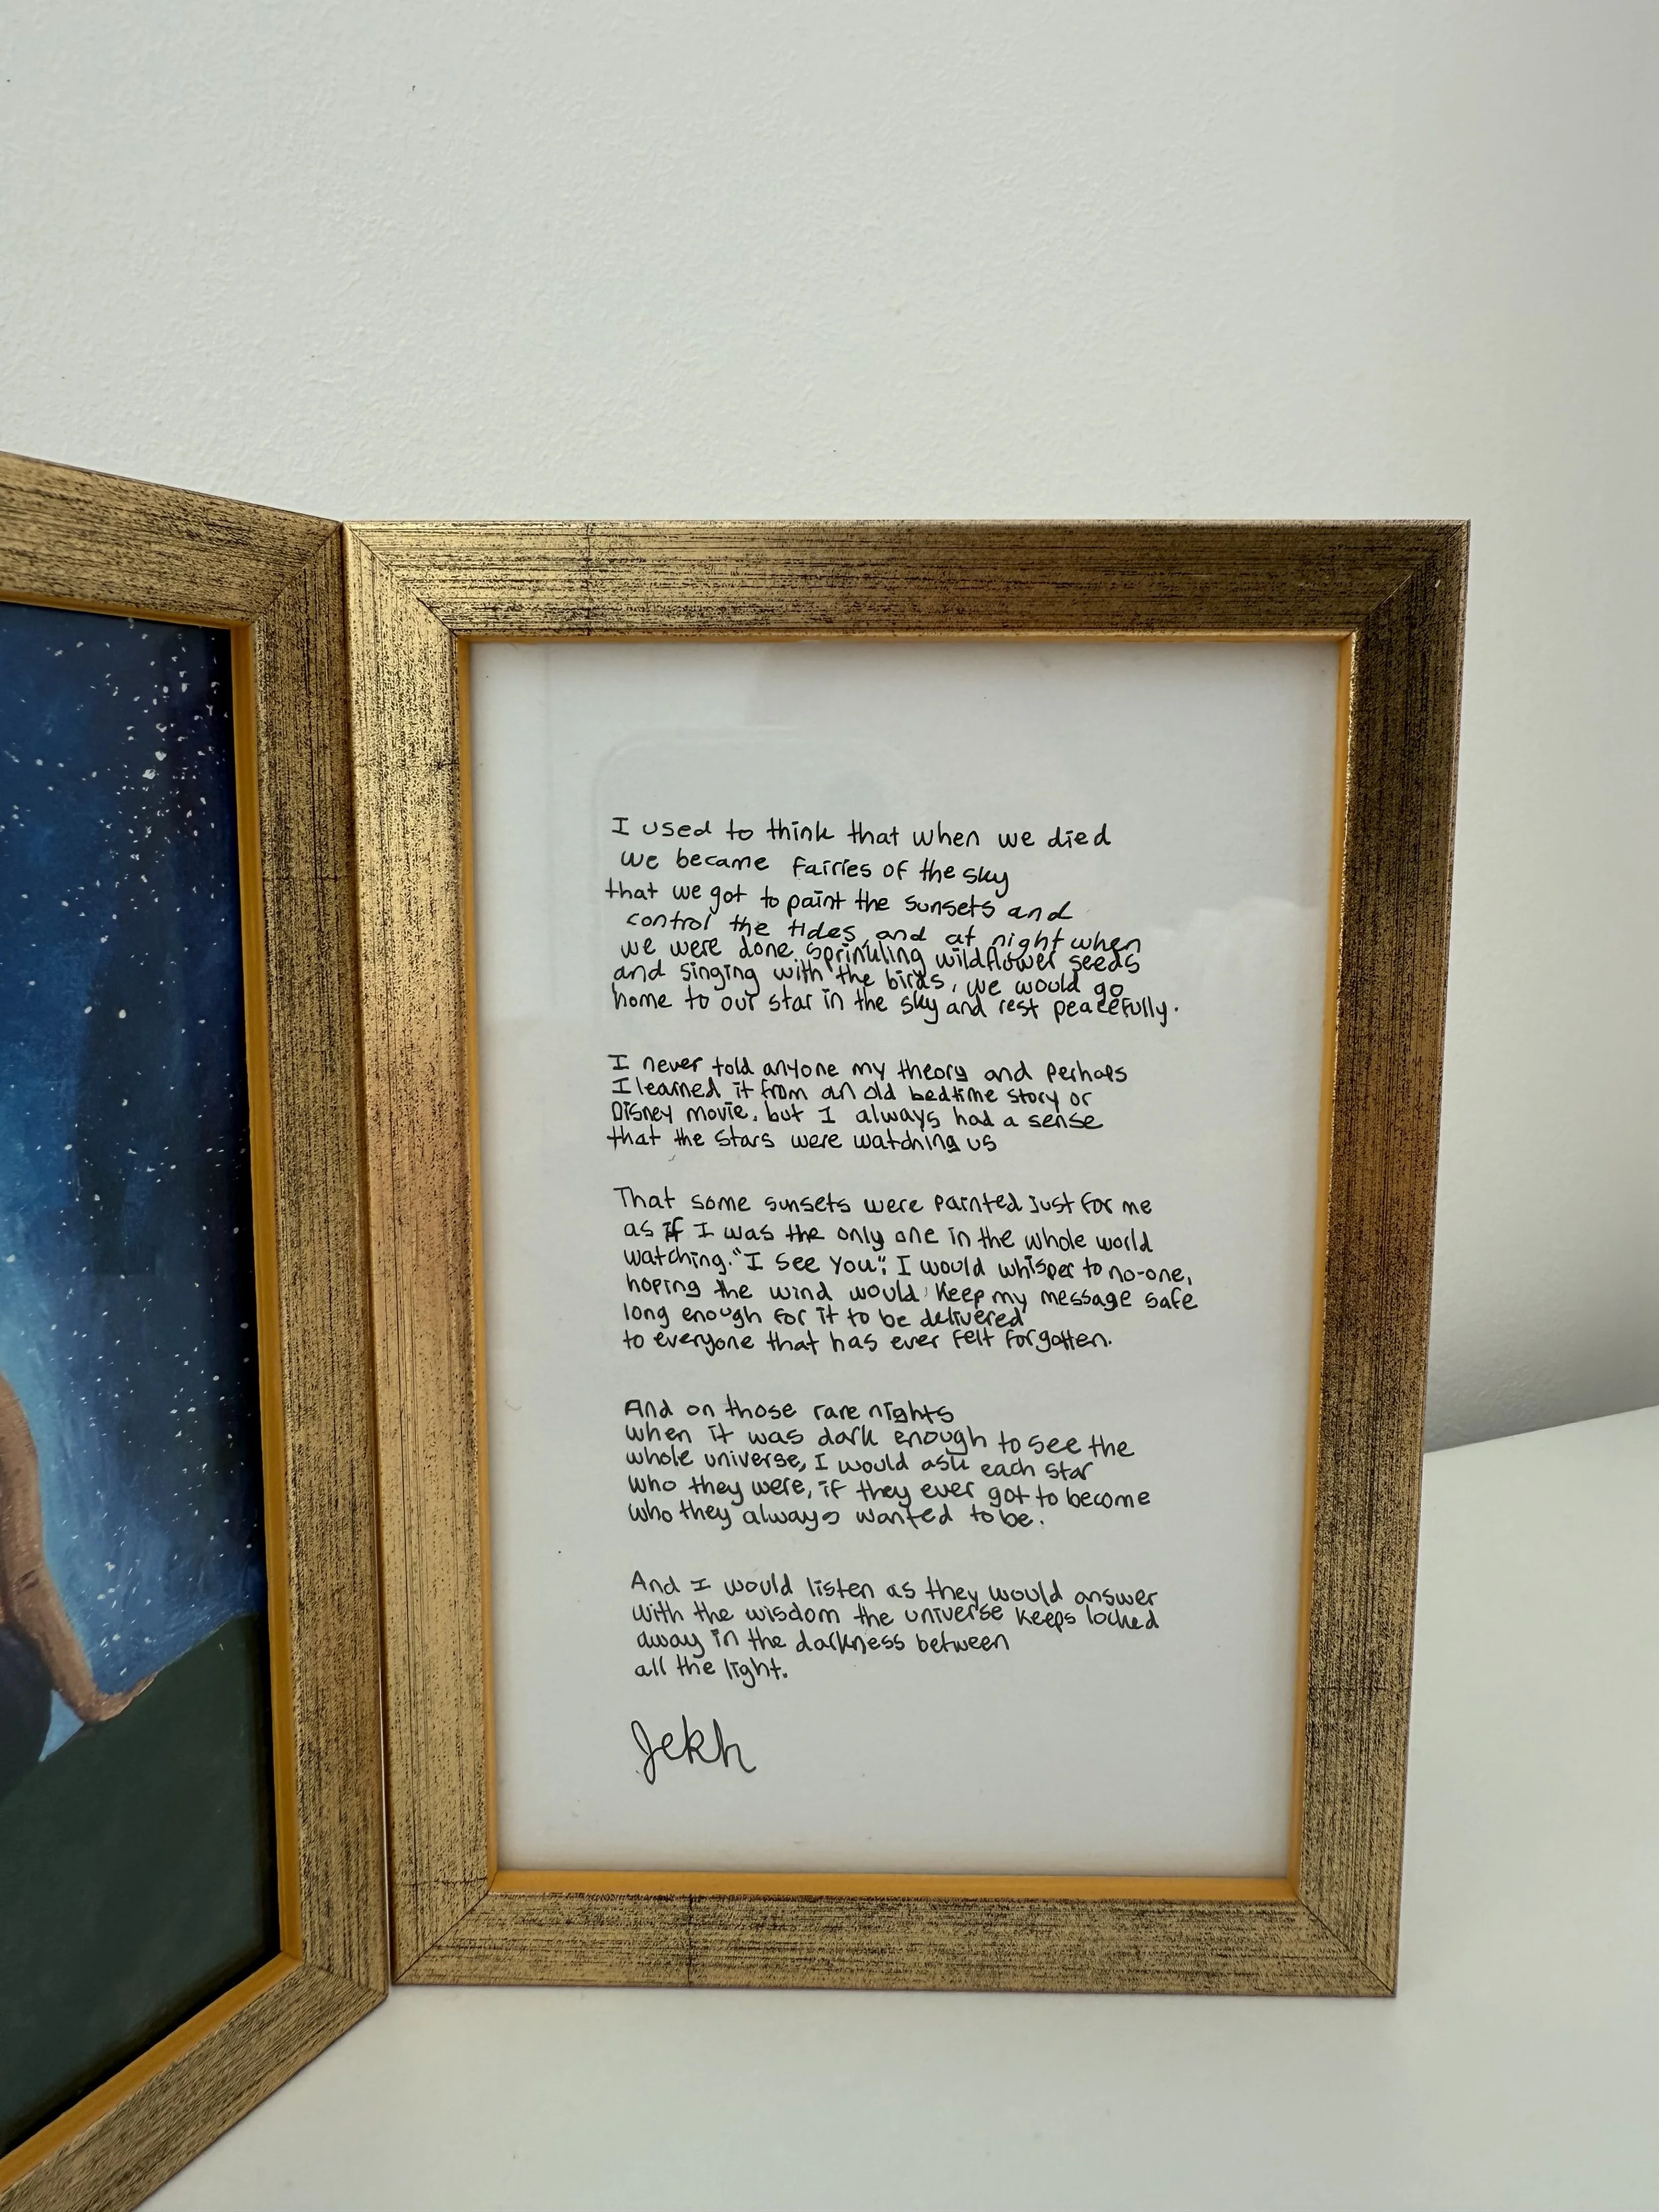 I used to think that when we died
we became fairies of the sky
that we got to paint the sunsets and
control the tides, and at night when
we were done sprinkling wildflower seeds
and singing with the birds, we would go
home to our star in the sky and rest peacefully.
I never told anyone my theory and perhaps
I learned it from an old bedtime story or
Disney movie, but I always had a sense
that the stars were watching us
That some sunsets were painted just for me
as if I was the only one in the whole world
watching. "I see you", I would whisper to no-one,
hoping the wind would keep my message safe
long enough for it to be delivered
to everyone that has ever felt forgotten.
And on those rare nights
when it was dark enough to see the
whole universe, I would ask each star
who they were, if they ever got to become
who they always wanted to be.
And I would listen as they would answer
with the wisdom the universe keeps locked
away in the darkness between
all the light.
Jekh